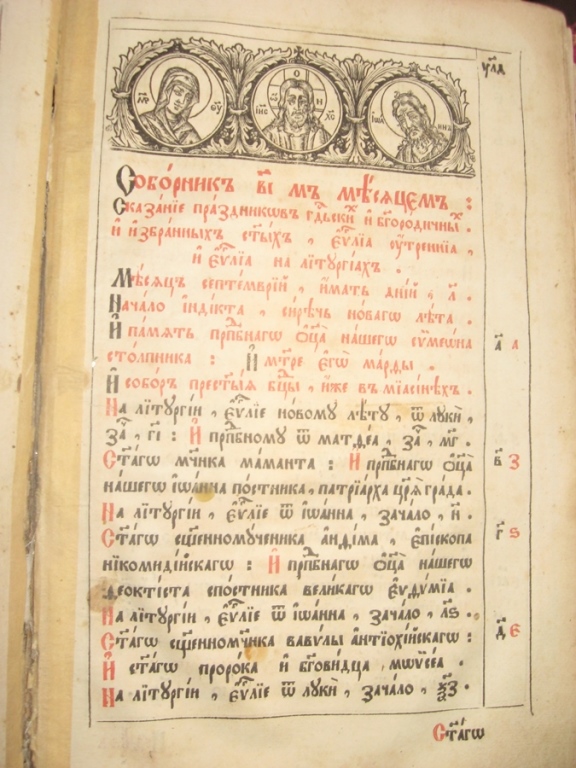 у҃лд
МР ѲУ
О Ѡ Н
ІИС ХС
ІѠА ННЪ
Собо́рникъ в҃і мъ мѣ́сяцемъ :
Сказа́нїе пра́здникѡвъ гдⷭ҇ьскиⷯ и҆ бг҃оро́дичныⷯ .
и҆ и҆збра́нныхъ ст҃ы́хъ , є҆ѵⷢ҇лїа ᲂу҆́тренняѧ ,
и҆ є҆ѵⷢ҇лїа на лїтꙋргі́ахъ .
Мѣ́сяцъ септе́мврїй , и҆́мать дні́й , л҃ .
Нача́ло і҆нді́кта , си́рѣчь но́вагѡ лѣ́та .
И҆ па́мять прпⷣбнагѡ ѻ҆ц҃а̀ на́шегѡ сѷмеѡ́на
сто́лпника : И҆ мт҃ре є҆гѡ̀ ма́рѳы .
И҆ собо́ръ прест҃ы́ѧ бц҃ы , и҆́же в мїасі́нѣхъ .
На лїтꙋргі́и , є҆ѵⷢ҇лїе но́вомꙋ лѣ́тꙋ , ѿ лꙋкѝ ,
заⷱ҇ , г҃і : И҆ прпⷣбномꙋ ѿ матѳе́а , заⷱ҇ , м҃г .
а҃ А
Ст҃а́гѡ мч҃ника ма́манта : И҆ прпⷣбнагѡ ѻ҆ц҃а̀
на́шегѡ і҆ѡа́нна по́стника , патрїа́рха цр҃ѧ́ гра́да .
На лїтꙋргі́и , є҆ѵⷢ҇лїе ѿ і҆ѡа́нна , зача́ло , н҃ .
в҃ З
Ст҃а́гѡ сщ҃енномꙋ́ченика а҆нѳі́ма , є҆пі́скопа
никомиді́йскагѡ : И҆ прпⷣбнагѡ ѻ҆ц҃а̀ на́шегѡ
ѳеокті́ста спо́стника вели́кагѡ є҆ѵдѵ́мїа .
На лїтꙋргі́и , є҆ѵⷢ҇лїе ѿ і҆ѡа́нна , зача́ло , л҃ѕ .
г҃ Ѕ
Ст҃а́гѡ сщ҃енномч҃ника вавѵ́лы а҆нтїохі́йскагѡ :
И҆ ст҃а́гѡ проро́ка и҆ бг҃ови́дца , мѡѵсе́а .
На лїтꙋргі́и , є҆ѵⷢ҇лїе ѿ лꙋкѝ , зача́ло ,
д҃ Е
Ст҃а́гѡ